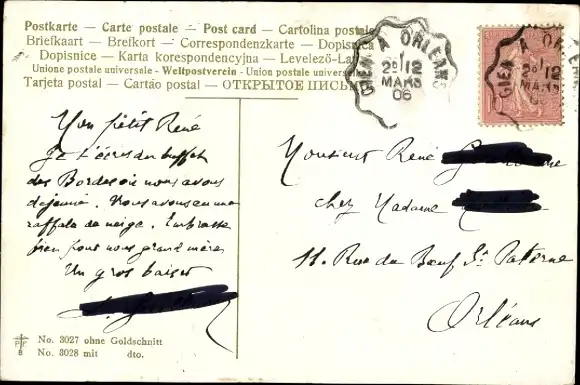 Postkarte — Carte postale — Post card — Cartolina postale
Briefkaart — Brefkort — Correspondenzkarte — Dopisnica
Dopisnice — Karta korespondencyjna — Levelező-La
Unione postale universale - Weltpostverein - Union postale universelle
Tarjeta postal — Cartão postal — ОТКРЫТОЕ ПИСЬ
GIEN A ORLEANS
2º 12
MARS
06
GIEN A ORL
2º 12
MARS
06
Mon petit René
Je t'écris du buffet
des Bordes où nous avons
déjeuné. Nous avons eu une
raffale de neige. Embrasse
bien pour nous grand mère
Un gros baiser
Monsieur René
chez Madame
11. Rue du Bœuf St Paterne
Orléans
No. 3027 ohne Goldschnitt
No. 3028 mit dto.